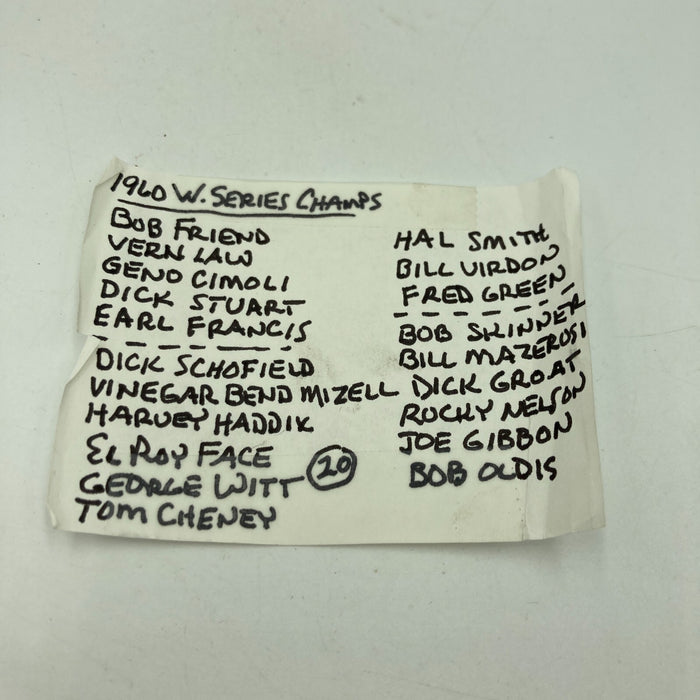 1960 W. SERIES CHAMPS
BOB FRIEND
VERN LAW
GENO CIMOLI
DICK STUART
EARL FRANCIS
DICK SCHOFIELD
VINEGAR BEND MIZELL
HARVEY HADDIX
ELROY FACE
GEORGE WITT
TOM CHENEY
20
HAL SMITH
BILL VIRDON
FRED GREEN
BOB SKINNER
BILL MAZEROSI
DICK GROAT
ROCKY NELSON
JOE GIBBON
BOB OLDIS